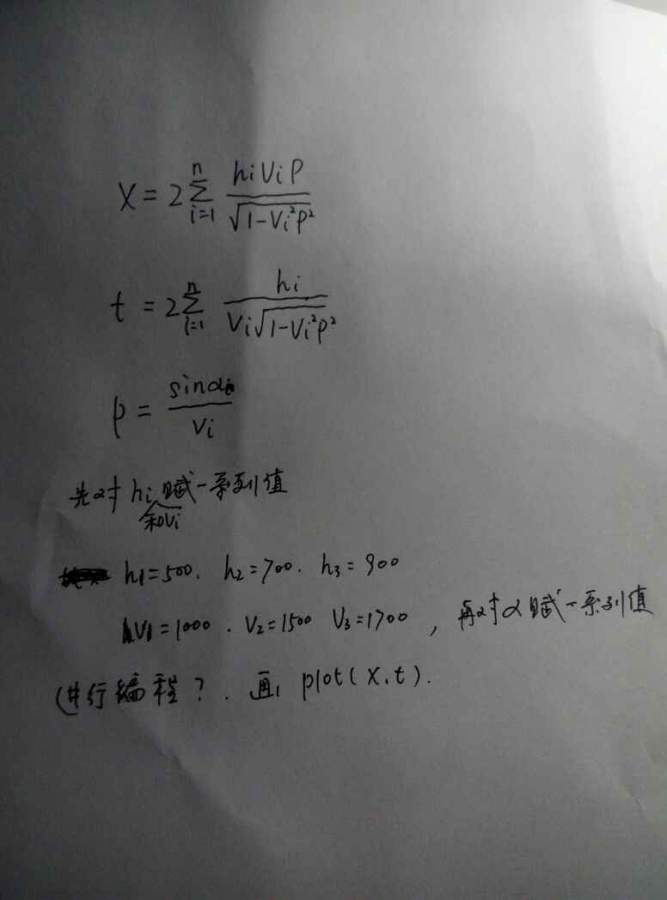 X = 2 \sum_{i=1}^{n} \frac{h_i V_i P}{\sqrt{1-V_i^2 P^2}}
t = 2 \sum_{i=1}^{n} \frac{h_i}{V_i \sqrt{1-V_i^2 P^2}}
P = \frac{\sin\alpha_i}{V_i}
先对 hi 和Vi 赋一系列值
h1=500. h2=700. h3=900
V1=1000. V2=1500 V3=1700, 再对α赋一系列值
进行编程?. 画 plot(X,t).